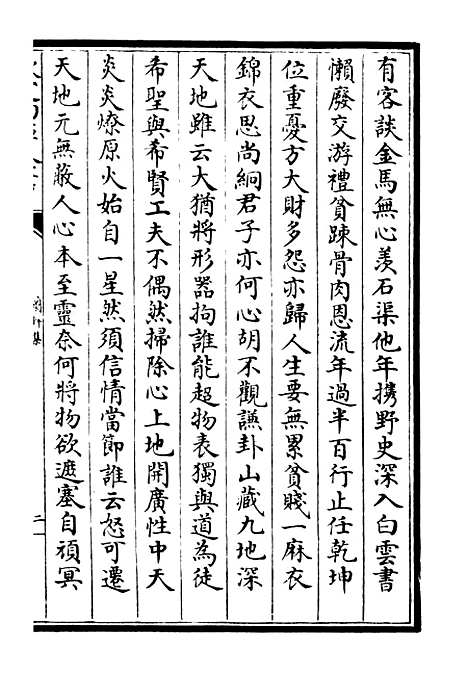 有客談金馬無心羨石渠他年攜野史深入白雲書
懶廢交游禮貧踈骨肉恩流年過半百行止任乾坤
位重憂方大財多怨亦歸人生要無累貧賤一麻衣
錦衣思尚絅君子亦何心胡不觀謙卦山藏九地深
天地雖云大猶將形器拘誰能超物表獨與道為徒
希聖與希賢工夫不偶然掃除心上地開廣性中天
炎炎燎原火始自一星然須信情當節誰云怒可遷
天地元無蔽人心本至靈奈何將物欲遮塞自頑冥